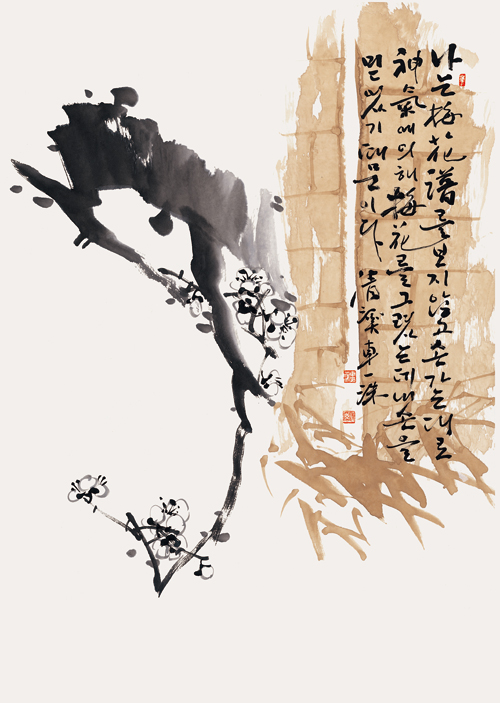 나는 梅花譜를 보지않고 손가는대로
神氣에의해 梅花를 그렸는데 내 손을
믿었기때문이다 車一洙